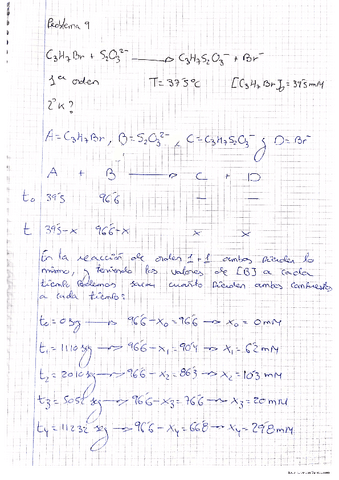 Problema 9
C₃H₇Br + S₂O₃²⁻ ⟶ C₃H₇S₂O₃⁻ + Br⁻
1ª orden T = 37'5ºC [C₃H₇Br]₀ = 39'5 mM
¿K?
A = C₃H₇Br, B = S₂O₃²⁻, C = C₃H₇S₂O₃⁻ y D = Br⁻
A + B ⟶ C + D
t₀ 39'5 96'6 — —
t 39'5-x 96'6-x x x
En la reacción de orden 1+1 ambos pierden lo
mismo, y teniendo los valores de [B] a cada
tiempo podemos sacar cuanto pierden ambos
a cada tiempo:
t₀ = 0 sg ⟶ 96'6 - x₀ = 96'6 → x₀ = 0 mM
t₁ = 1110 sg ⟶ 96'6 - x₁ = 90'4 → x₁ = 6'2 mM
t₂ = 2010 sg ⟶ 96'6 - x₂ = 86'3 → x₂ = 10'3 mM
t₃ = 5052 sg ⟶ 96'6 - x₃ = 76'6 → x₃ = 20 mM
t₄ = 11232 sg ⟶ 96'6 - x₄ = 66'8 → x₄ = 29'8 mM